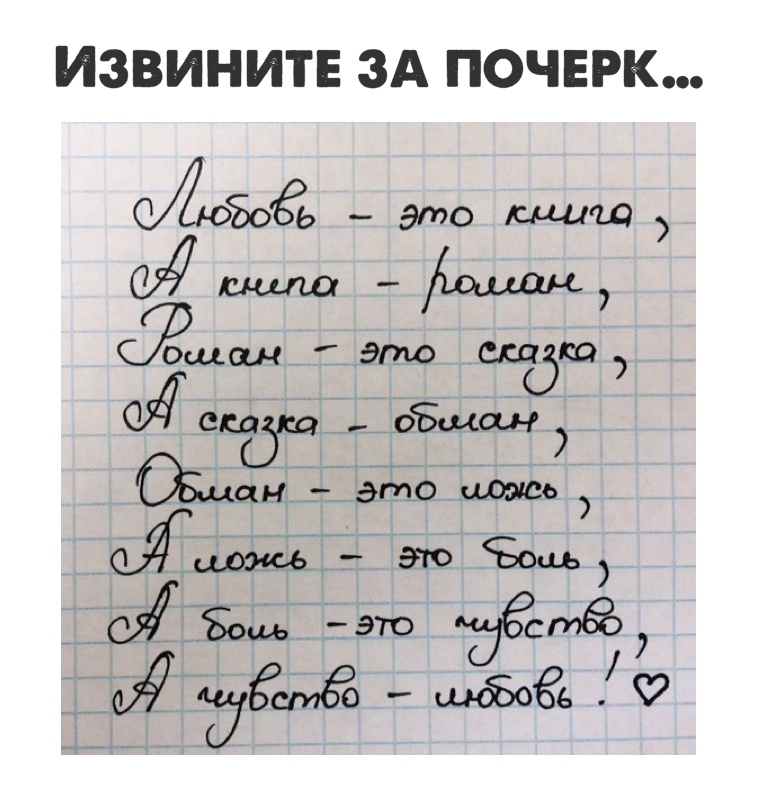 ИЗВИНИТЕ ЗА ПОЧЕРК...
Любовь - это книга,
А книга - роман,
Роман - это сказка,
А сказка - обман,
Обман - это ложь,
А ложь - это боль,
А боль - это чувство,
А чувство - любовь! ♡